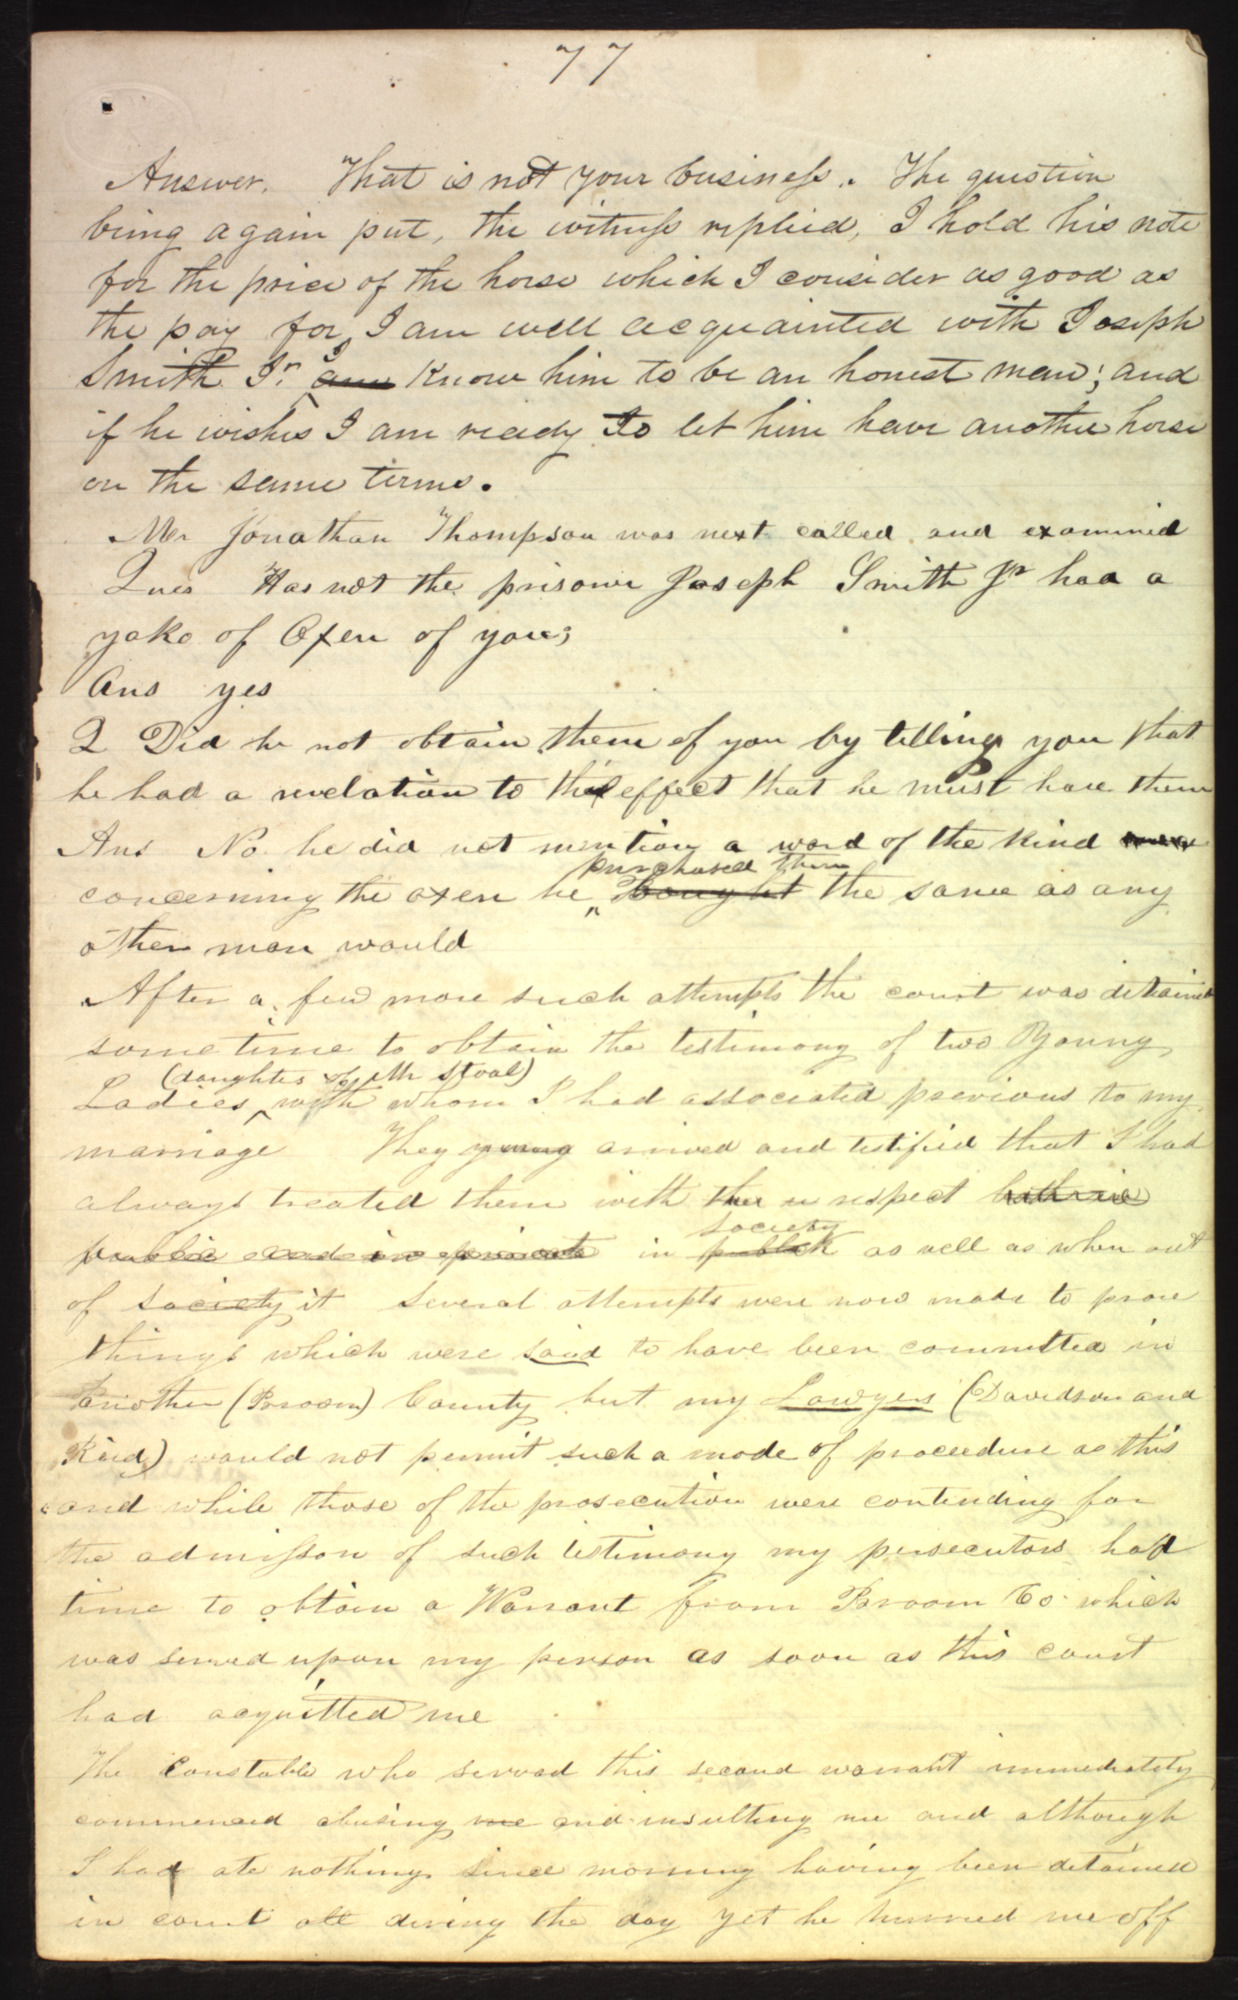 77
Answer. That is not your business. The question
being again put, the witness replied, I hold his note
for the price of the horse which I consider as good as
the pay for I am well acquainted with Joseph
Smith Jr. I am Know him to be an honest man; and
if he wishes I am ready to let him have another horse
on the same terms.
Mr Jonathan Thompson was next called and examined
Ques Has not the prisoner Joseph Smith Jr had a
yoke of Oxen of you;
Ans yes
Q Did he not obtain them of you by telling you that
he had a revelation to this effect that he must have them
Ans No he did not mention a word of the kind
purchased them
concerning the oxen he bought the same as any
other man would
After a few more such attempts the court was detained
some time to obtain the testimony of two Young
(daughters of Josiah Stoal)
Ladies with whom I had associated previous to my
marriage They young arrived and testified that I had
always treated them with respect both in
public and in private in public as well as when out
society
of society it several attempts were now made to prove
things which were said to have been committed in
another (Broom) County but my Lawyers (Davidson and
Reid) would not permit such a mode of proceedure as this
and while those of the prosecution were contending for
the admisson of such testimony my persecutors had
time to obtain a Warrant from Broom Co. which
was served upon my person as soon as this court
had acquitted me
The Constable who served this second warrant immediately
commenced abusing me and insulting me and although
I had ate nothing since morning having been detained
in court all during the day yet he hurried me off